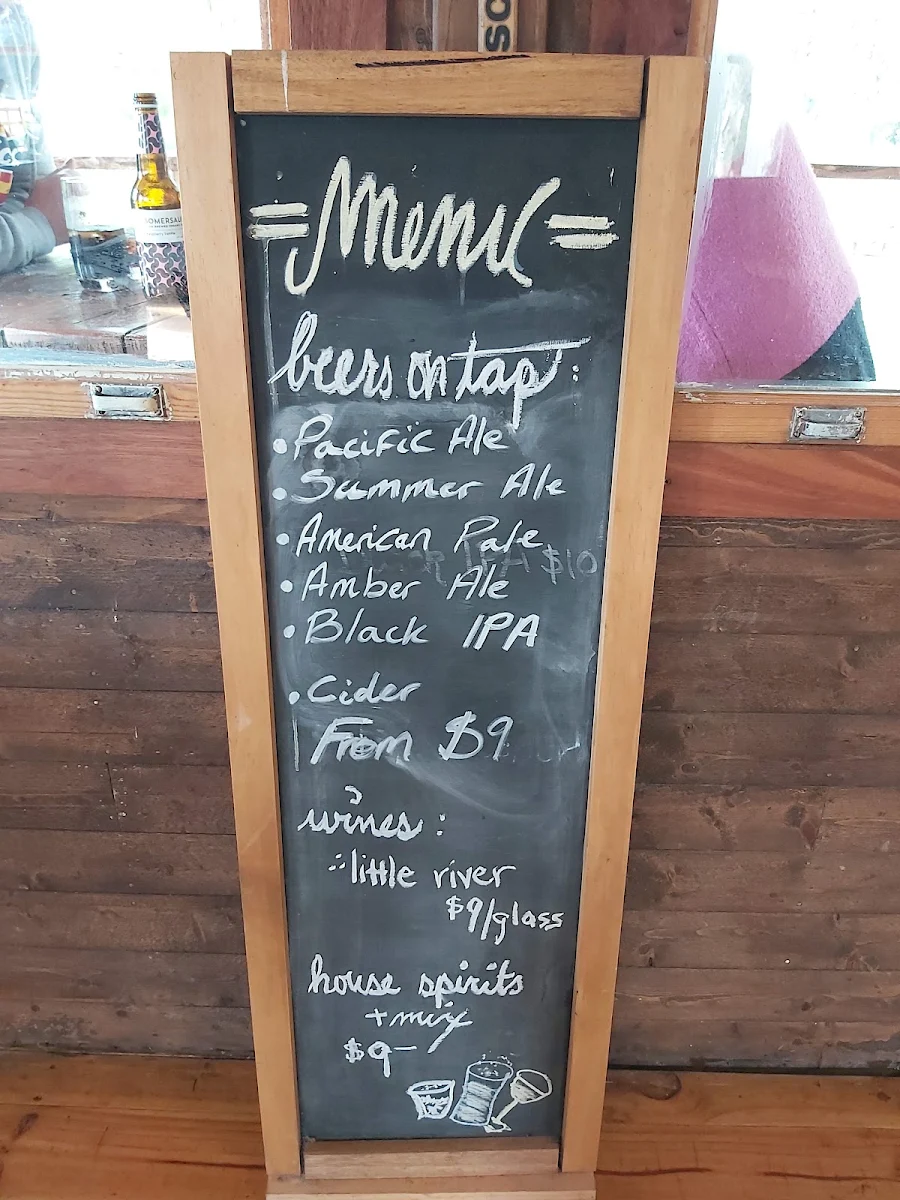 SC
SOMERSBY
=Menu=
beers on tap:
• Pacific Ale
• Summer Ale
• American Pale
IPA $10
• Amber Ale
• Black IPA
• Cider
From $9
wines:
little river
$9/glass
house spirits
+ mix
$9-